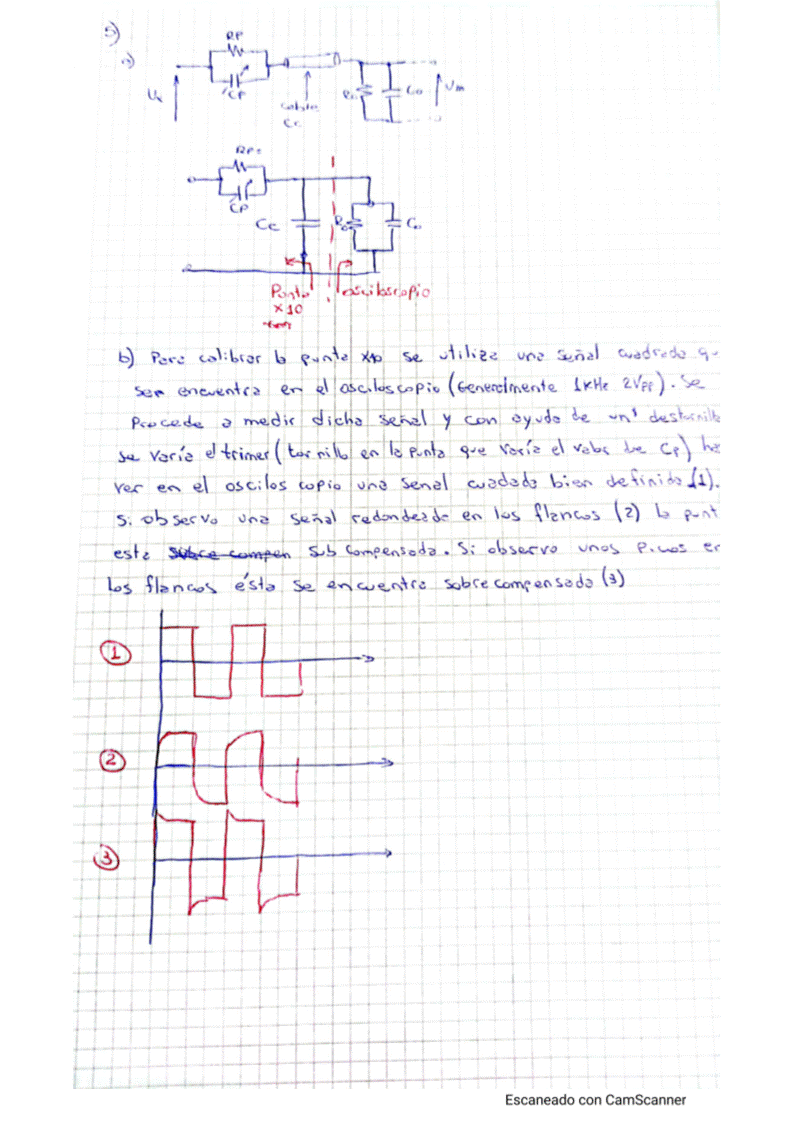 5)
a)
RP
CP
Ux
cable
Cc
Ro
Co
Um
RP
CP
Cc
Ro
Co
Punta
x10
osciloscopio
b) Para calibrar la punta x10 se utiliza una señal cuadrada q
se encuentra en el osciloscopio (Generalmente 1kHz 2Vpp). Se
procede a medir dicha señal y con ayuda de un destornilla
se varía el trimer (tornillo en la punta que varía el valor de Cp) ha
ver en el osciloscopio una señal cuadada bien definida (1).
Si observo una señal redondeada en los flancos (2) la punt
esta sobre compen sub compensada. Si observo unos picos en
los flancos ésta se encuentra sobrecompensada (3)
1
2
3
Escaneado con CamScanner